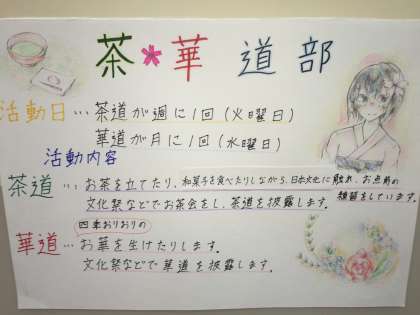 茶*華道部
活動日…茶道が週に1回(火曜日)
華道が月に1回(水曜日)
活動内容
茶道…お茶を立てたり、和菓子を食べたりしながら、日本文化に触れ、お点前の
練習をしています。
文化祭などでお茶会をし、茶道を披露します。
四季おりおりの
華道…お華を生けたりします。
文化祭などで華道を披露します。